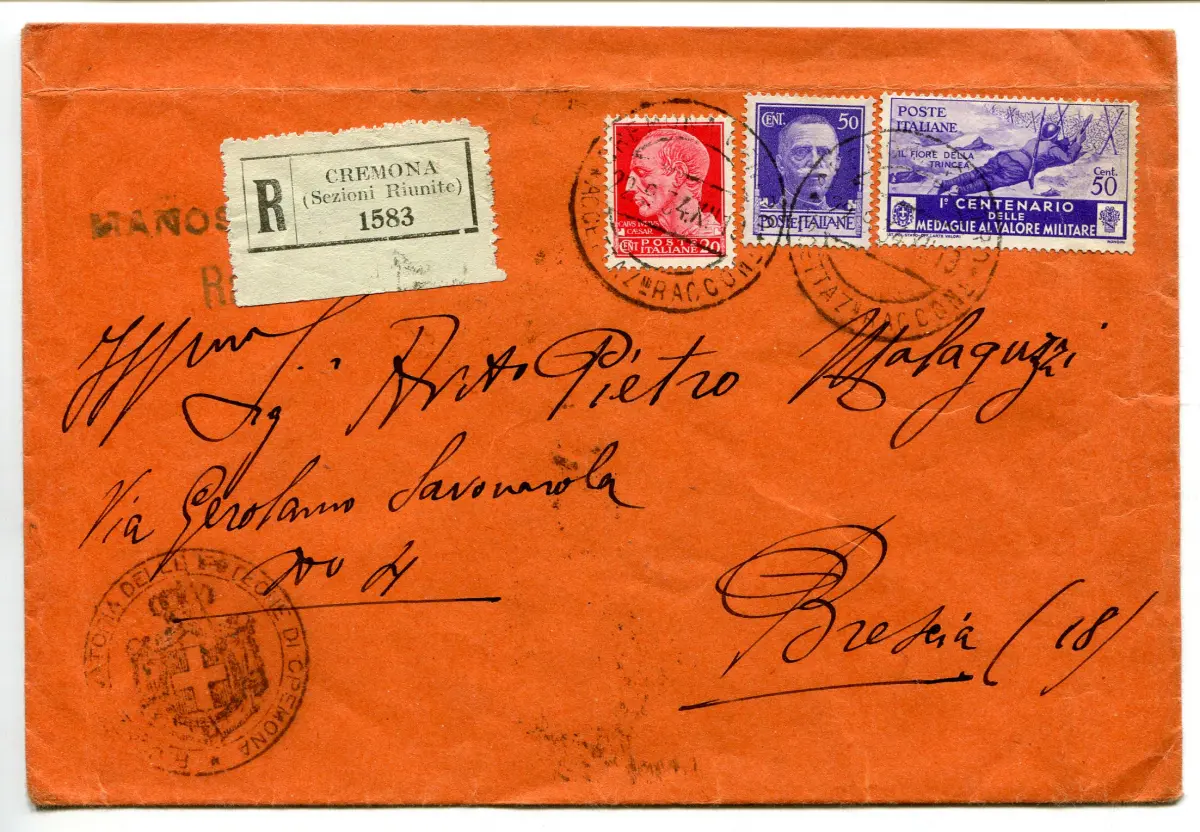 R
CREMONA
(Sezioni Riunite)
1583
MANOS
R
CENT 20
CAESAR
POSTE
ITALIANE
CENT. 50
POSTE ITALIANE
POSTE
ITALIANE
IL FIORE DELLA
TRINCEA
Cent.
50
I° CENTENARIO
DELLE
MEDAGLIE AL VALORE MILITARE
Sig. Pietro Malaguzzi
Via Gerolamo Savonarola
No 4
Brescia (18)
DELLE IPOTECHE DI CREMONA